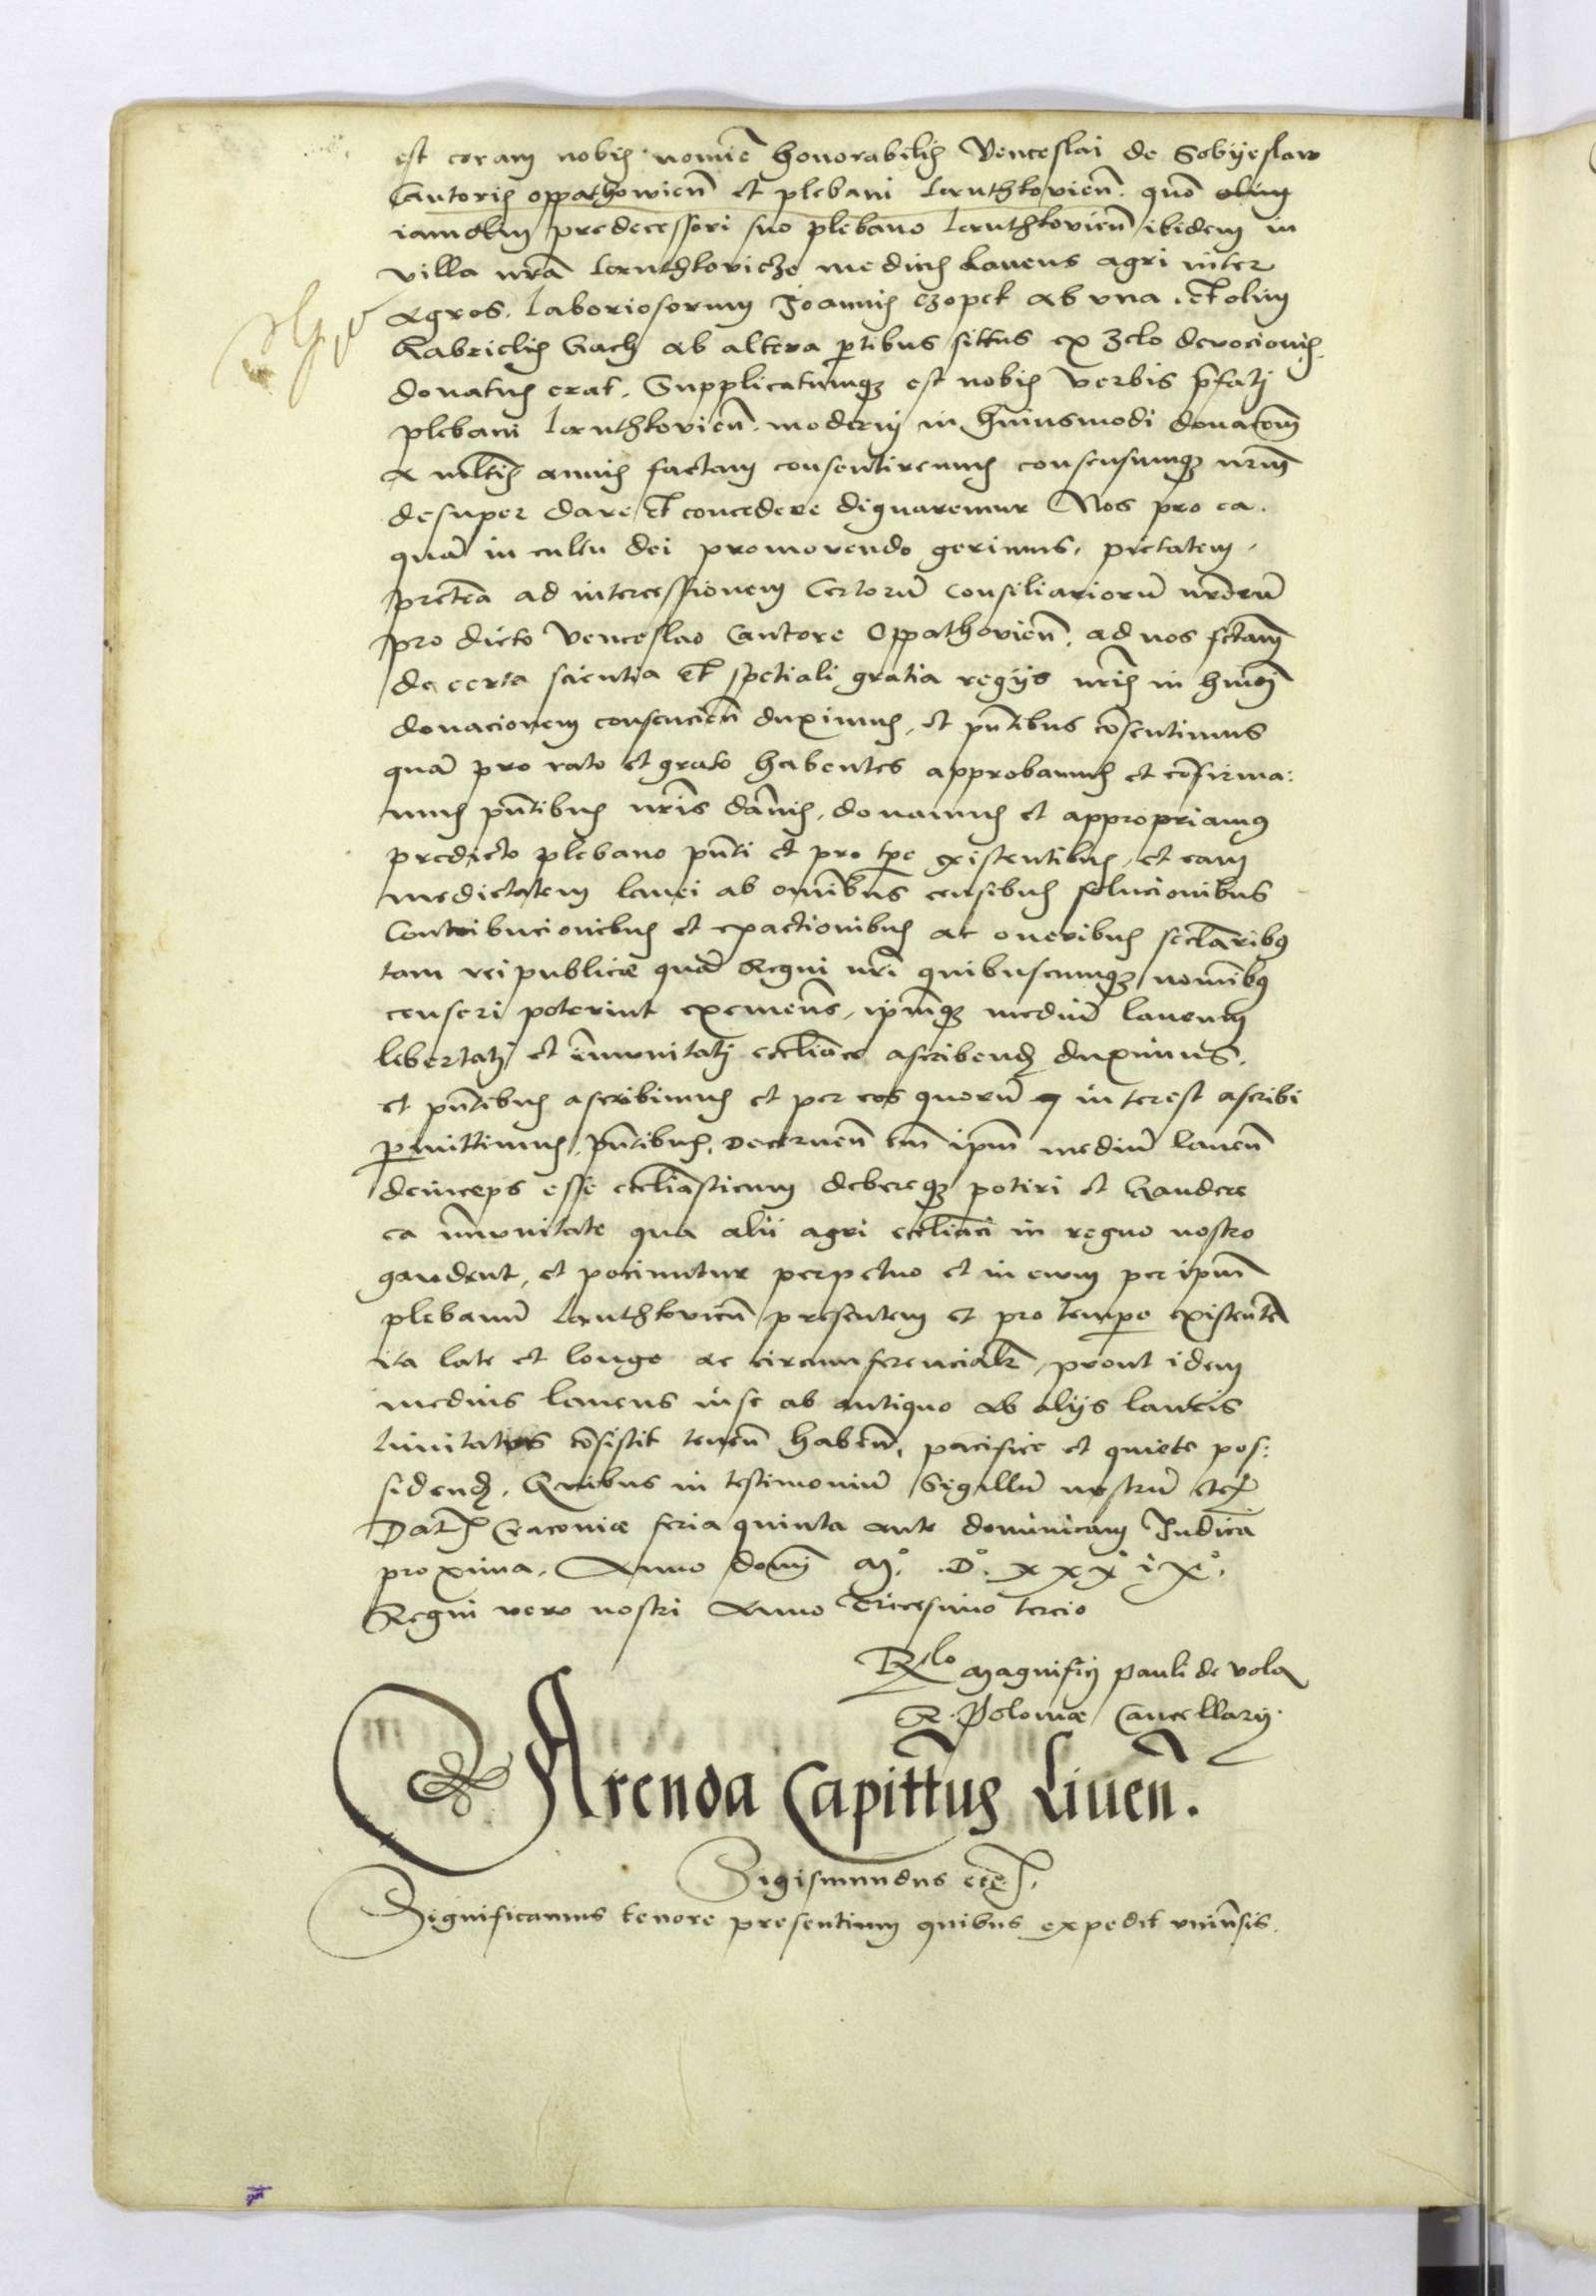 est coram nobis nomie honorabilis Venceslai de Sobyeslaw
Cantoris oppathowien̄ et plebani iankovien̄. quō olim
iamolim predecessori suo plebano ibidem in
villa nrā medius laneus agri inter
agros. laboriosorum Joannis Czopek ab vna. et olim
Gabrielis Gach ab altera ptibus situs ex zelo devocionis
donatus erat. Supplicatumqȝ est nobis verbis pfati
plebani moderni in huiusmodi donacōem
a multis annis factam consentiremus consensumqȝ nrm̄
desuper dare et concedere dignaremur Nos pro ea.
quā in cultu dei promovendo gerimus, pietatem,
pretea ad intercessionem Certorū Consiliariorū nrorū
pro dicto Venceslao Cantore Oppathovien̄. ad nos fctam
de certa scientia et spetiali gratia regijs nris in hmōi
donacionem consencien̄ duximus, et pn̄tibus cōsentimus
quā pro rato et grato habentes approbamus et cōfirma:
mus pn̄tibus nris damus, donamus et appropriamus
predicto plebano pn̄ti et pro tpe existentibus, et eam
medietatem lanei ab omībus censibus solucionibus
Contribucionibus et exactionibus ac oneribus seclaribus
tam reipublicæ quā Regni nri quibuscumqȝ nomībus
censeri poterint eximens, ipmqȝ mediū laneum
libertati et īmunitati eccliace ascribend duximus.
et pn̄tibus ascribimus et per eos quorū interest ascribi
pmittimus, pn̄tibus, Decernen̄ ipm mediū laneū
deinceps esse eccliasticum debereqȝ potiri et Gaudere
ea imunitate qua alii agri eccliaci in regno nostro
gaudent, et pociuntur perpetuo et in evum per ipm
plebanū presentem et pro tempore existentē
ita late et longe ac circumferencialr, prout idem
medius laneus in se ab antiquo ab alijs laneis
limitatus cōsistit tenen̄ haben̄, pacifice et quiete pos:
sidend. Quibus in testimoniū Sigillū nostrū etc
Dat Cracoviæ feria quinta ante dominicam Judica
proxima. Anno domi M°. D°. xxx ix°.
Regni vero nostri Anno Tricesimo tercio
Rlo Magnifici Pauli de vola
R. Poloniæ Cancellarij.
Arenda Capittus Liuen̄.
Sigismundus etc.
Significamus tenore presentium quibus expedit vniūsis.